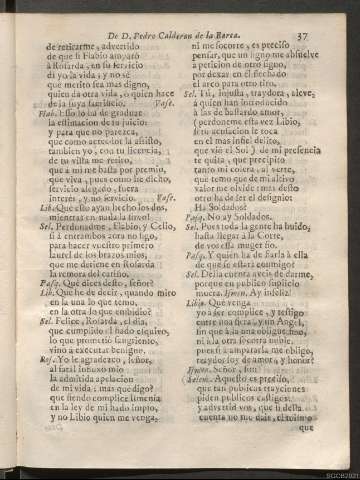 De D. Pedro Calderon de la Barca. 37
de retirarme, advertido
de que si Flabio amparò
à Rosarda, en su servicio
di yo la vida, y no sè
que merito sea mas digno,
quien dà otra vida, ò quien hace
de la suya sacrificio. Vase.
Flab. Esso lo ha de graduar
la estimacion de su juicio:
y para que no parezca,
que como acreedor la assisto,
tambien yo, con tu licencia,
de tu vista me retiro,
que à mi me basta por premio,
que viva, pues como he dicho,
servicio alegado, fuera
interès, y no servicio. Vase.
Lib. Que esto ayan hecho los dos,
mientras en nada la sirvo!
Sel. Perdonadme, Flabio, y Celio,
si à entrambos aora no sigo,
para hacer vuestro primero
laurel de los brazos mios,
que me detiene en Rosarda
la remora del cariño.
Pasq. Què dices desto, señor?
Lib. Què he de decir, quando miro
en la una lo que temo,
en la otra lo que embidio?
Sel. Felice, Rosarda, el dia,
que cumpliendo el hado esquivo,
lo que prometiò sangriento,
vino à executar benigno.
Ros. Yo le agradezco, señor,
al fatal influxo mio
la admitida apelacion
de mi vida; mas què digo?
que siendo complice Ismenia
en la ley de mi hado impio,
y no Libio quien me venga,
ni me socorre, es preciso
pensar, que un signo me absuelve
à peticion de otro signo,
por dexar en èl flechado
el arco para otro tiro.
Sel. Tù, injusta, traydora, aleve,
à quien han introducido
à ser de bastardo amor,
(perdoneme esta vez Libio,
si tu acusacion le toca
en el mas infiel delito,
que viò el Sol) de mi presencia
te quita, que precipito
tanto mi colera, al verte,
que temo que de mi altivo
valor me olvide: mas desto
otro ha de ser el designio:
Ha Soldados?
Pasq. No ay Soldados.
Sel. Pues toda la gente ha huido,
hasta llegar à la Corte,
de vos esta muger fio.
Pasq. Y quien ha de fiarla à ella
de que se estarà conmigo?
Sel. Della cuenta aveis de darme,
porque en publico suplicio
muera. Ismen. Ay infeliz!
Libio, Què venga
yo à ser complice, y testigo
entre una fiera, y un Angel,
sin que à una sea forzoso,
ni à la otra socorra noble,
pues si à ampararla me obligo,
traydor soy de amor, y honor?
Ismen. Señor, si
Selen. Aquesto es preciso,
que tan publicas trayciones
piden publicos castigos:
y advertid vos, que si desta
cuenta no me dais, el mismo
que